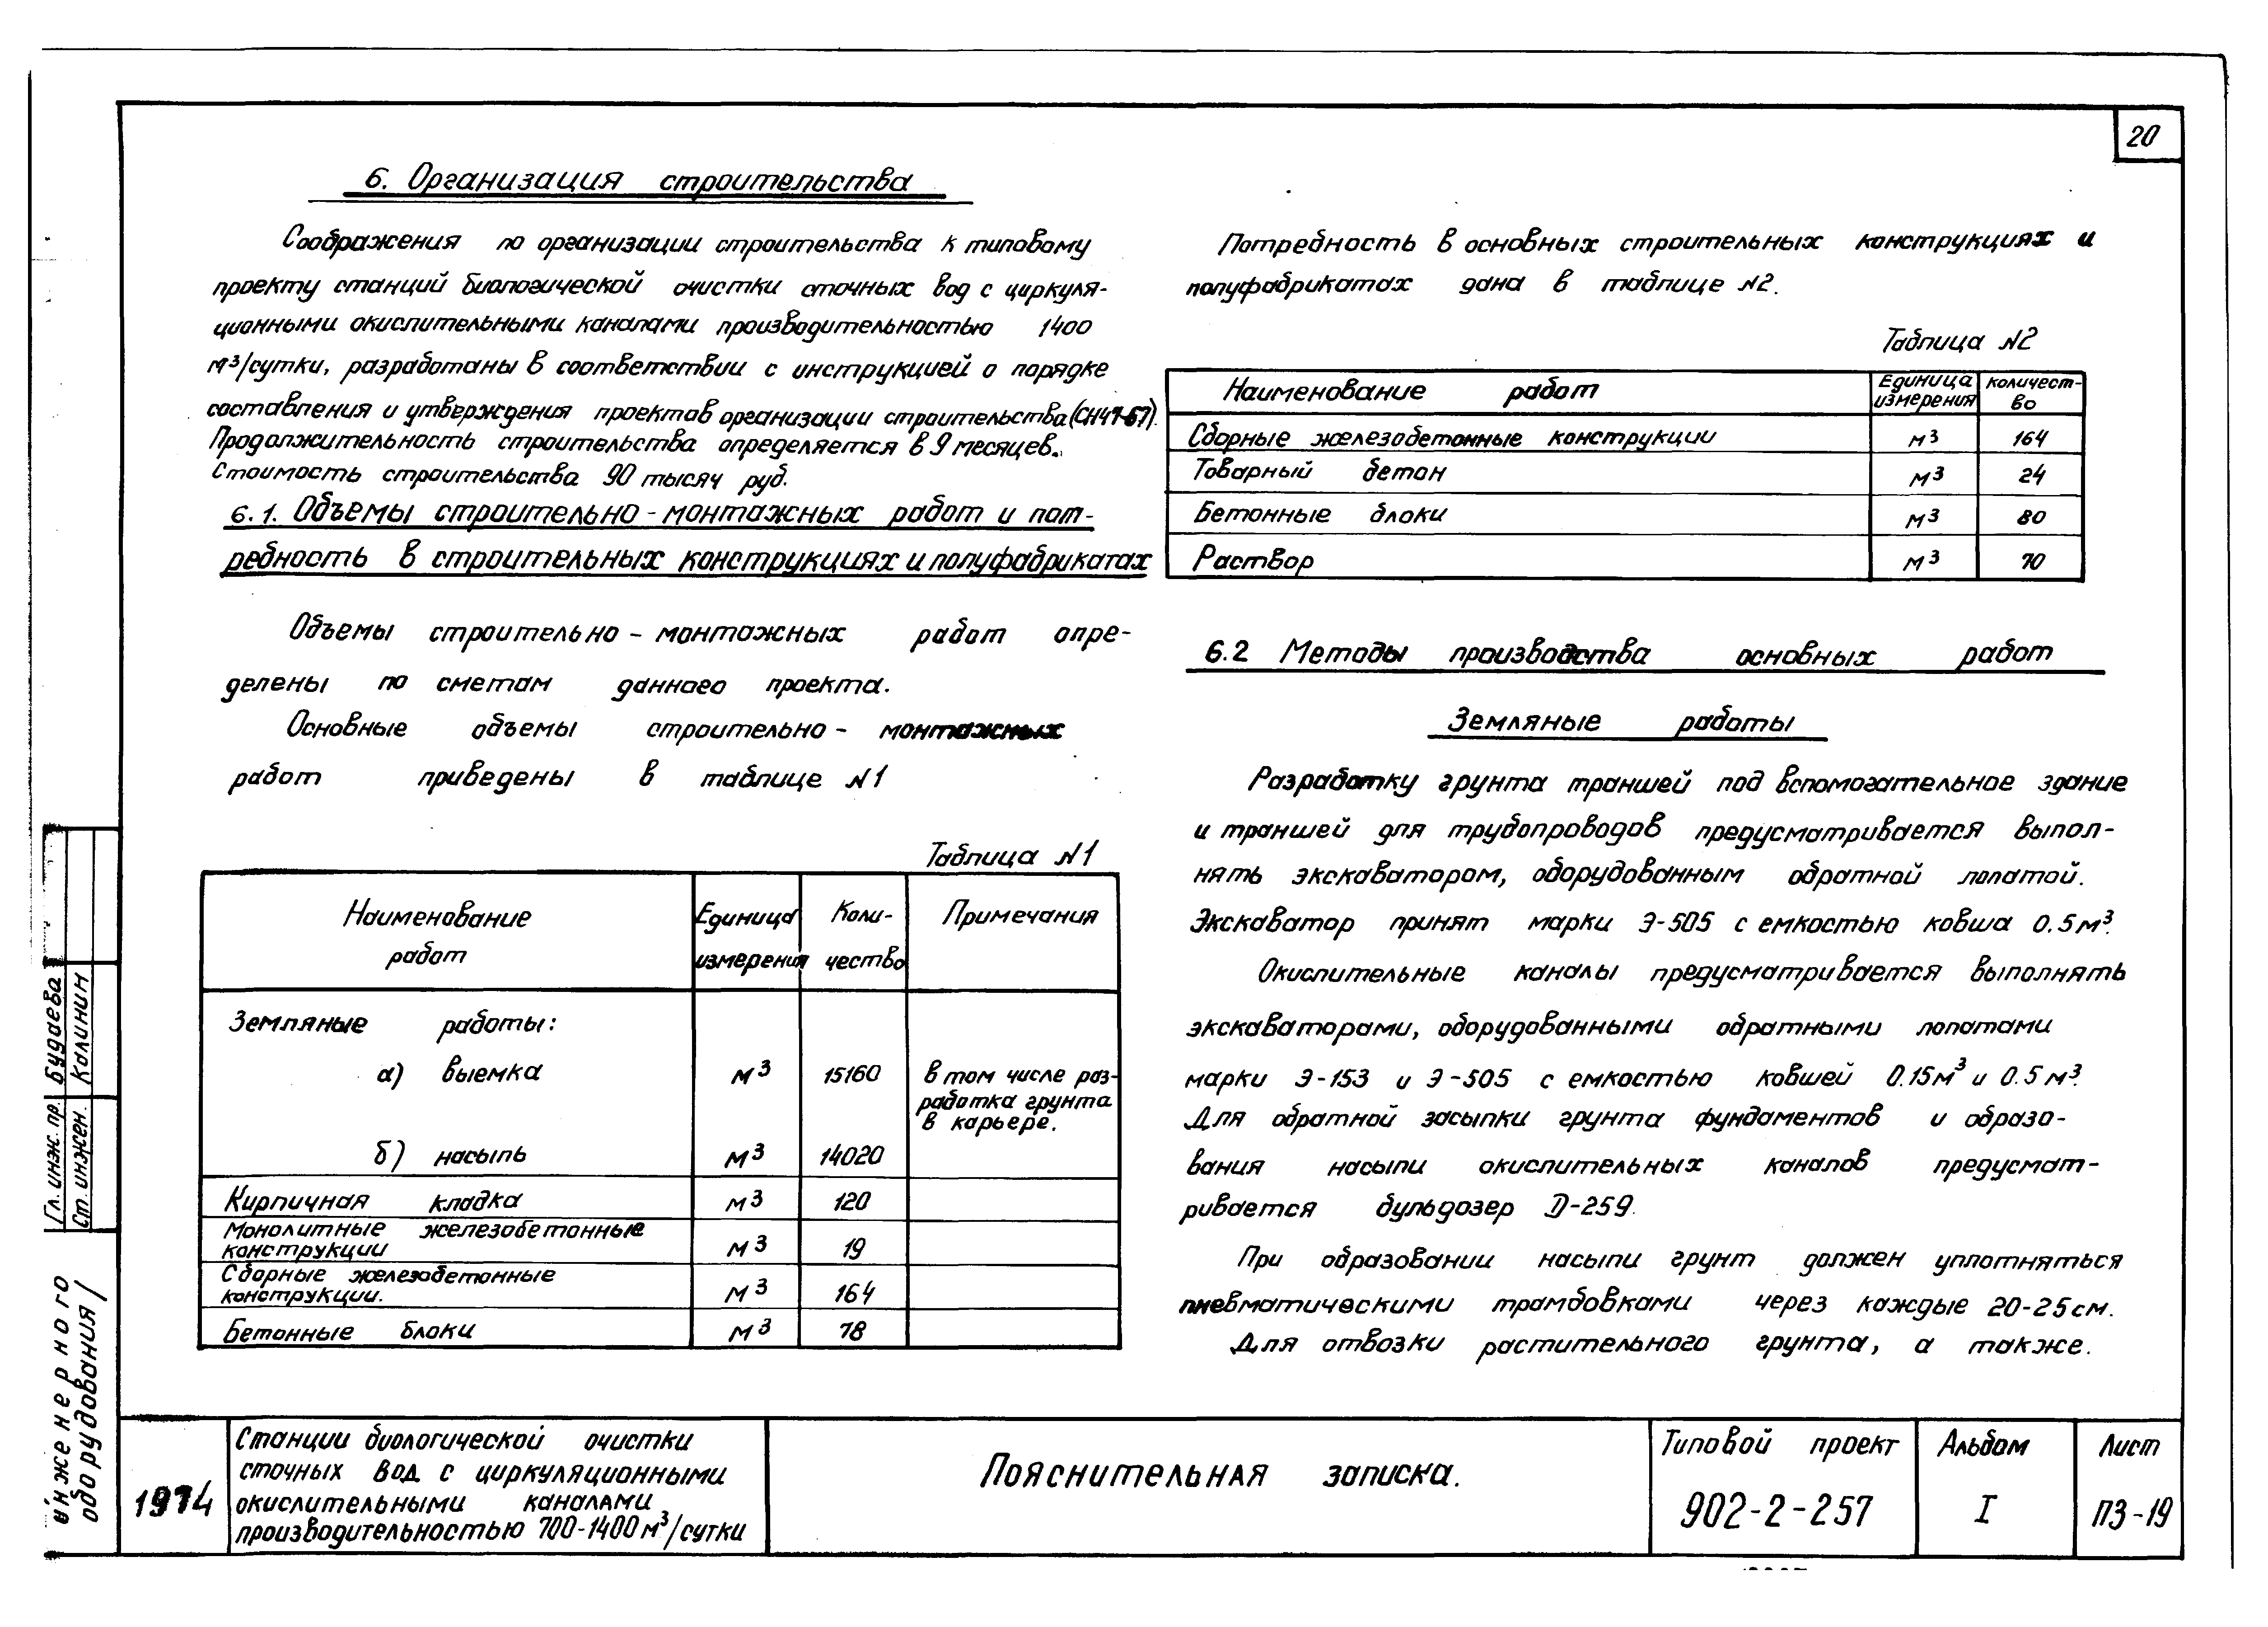 20
6. Организация строительства
Соображения по организации строительства к типовому
проекту станций биологической очистки сточных вод с циркуля-
ционными окислительными каналами производительностью 1400
м³/сутки, разработаны в соответствии с инструкцией о порядке
составления и утверждения проектов организации строительства (СН47-67).
Продолжительность строительства определяется в 9 месяцев.
Стоимость строительства 90 тысяч руб.
6.1. Объемы строительно-монтажных работ и пот-
ребность в строительных конструкциях и полуфабрикатах
Объемы строительно-монтажных работ опре-
делены по сметам данного проекта.
Основные объемы строительно-монтажных
работ приведены в таблице N1
Таблица N1
Наименование работ Единица измерения Коли-чество Примечания
Земляные работы:
а) выемка м³ 15160 в том числе раз-
работка грунта
в карьере.
б) насыпь м³ 14020
Кирпичная кладка м³ 120
Монолитные железобетонные
конструкции м³ 19
Сборные железобетонные
конструкции. м³ 164
Бетонные блоки м³ 78
Потребность в основных строительных конструкциях и
полуфабрикатах дана в таблице N2.
Таблица N2
Наименование работ Единица измерения Количест-во
Сборные железобетонные конструкции м³ 164
Товарный бетон м³ 24
Бетонные блоки м³ 80
Раствор м³ 70
6.2 Методы производства основных работ
Земляные работы
Разработку грунта траншей под вспомогательное здание
и траншей для трубопроводов предусматривается выпол-
нять экскаватором, оборудованным обратной лопатой.
Экскаватор принят марки Э-505 с емкостью ковша 0.5м³.
Окислительные каналы предусматривается выполнять
экскаваторами, оборудованными обратными лопатами
марки Э-153 и Э-505 с емкостью ковшей 0.15м³ и 0.5м³.
Для обратной засыпки грунта фундаментов и образо-
вания насыпи окислительных каналов предусмат-
ривается бульдозер Д-259.
При образовании насыпи грунт должен уплотняться
пневматическими трамбовками через каждые 20-25см.
Для отвозки растительного грунта, а также.
Гл. инж. пр. Будаева
Ст. инжен. Калинин
инженерного
оборудования/
1974
Станции биологической очистки
сточных вод с циркуляционными
окислительными каналами
производительностью 700-1400м³/сутки
Пояснительная записка.
Типовой проект
902-2-257
Альбом
I
Лист
ПЗ-19